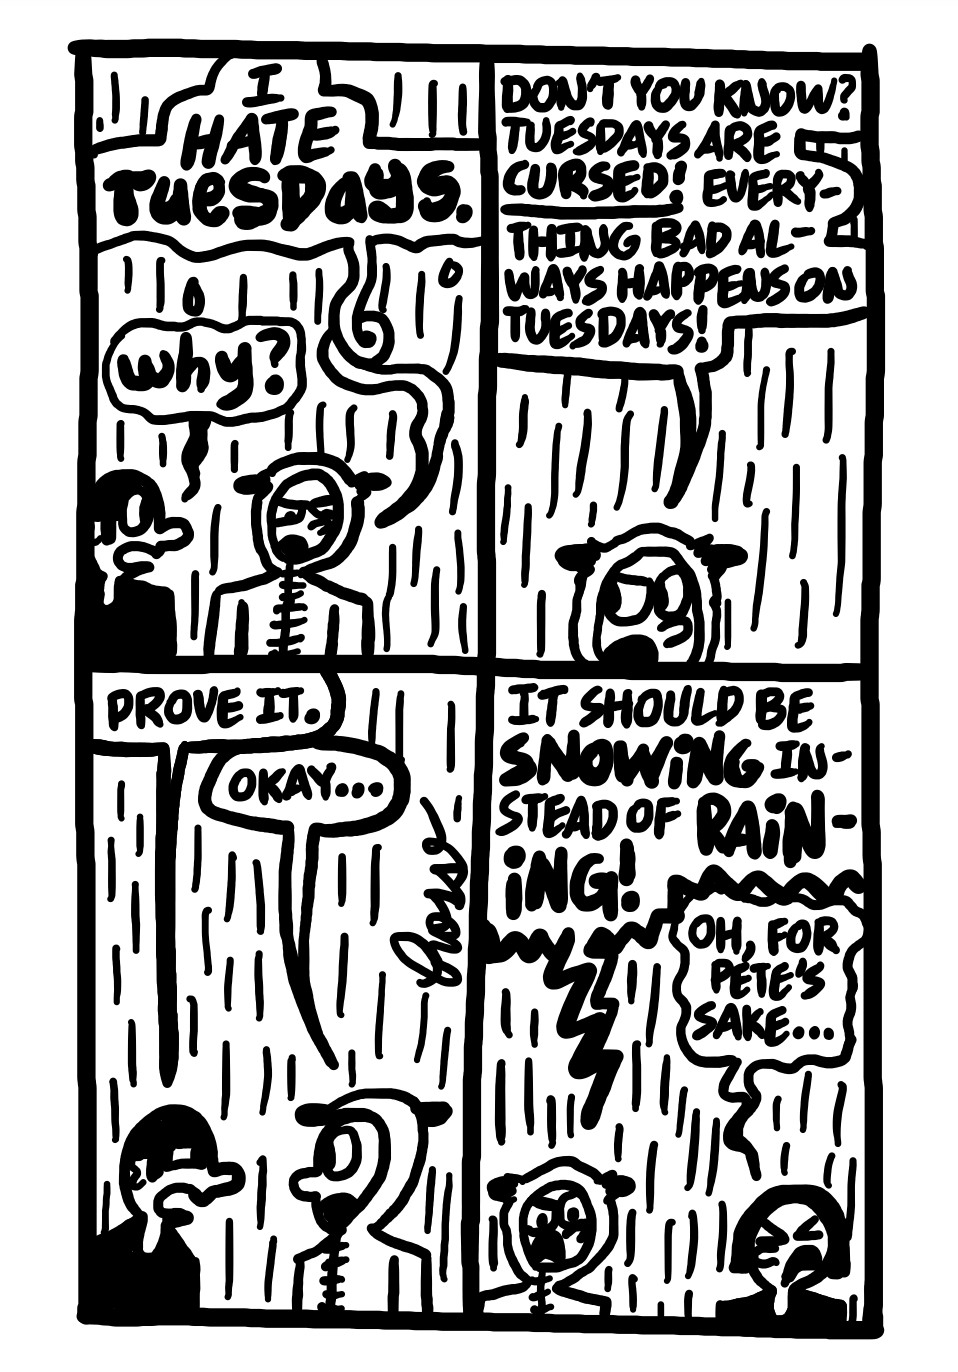 I
HATE
TUESDAYS.
why?
DON'T YOU KNOW?
TUESDAYS ARE
CURSED! EVERY-
THING BAD AL-
WAYS HAPPENS ON
TUESDAYS!
PROVE IT.
OKAY...
IT SHOULD BE
SNOWiNG IN-
STEAD OF RAiN-
iNG!
OH, FOR
PETE'S
SAKE...